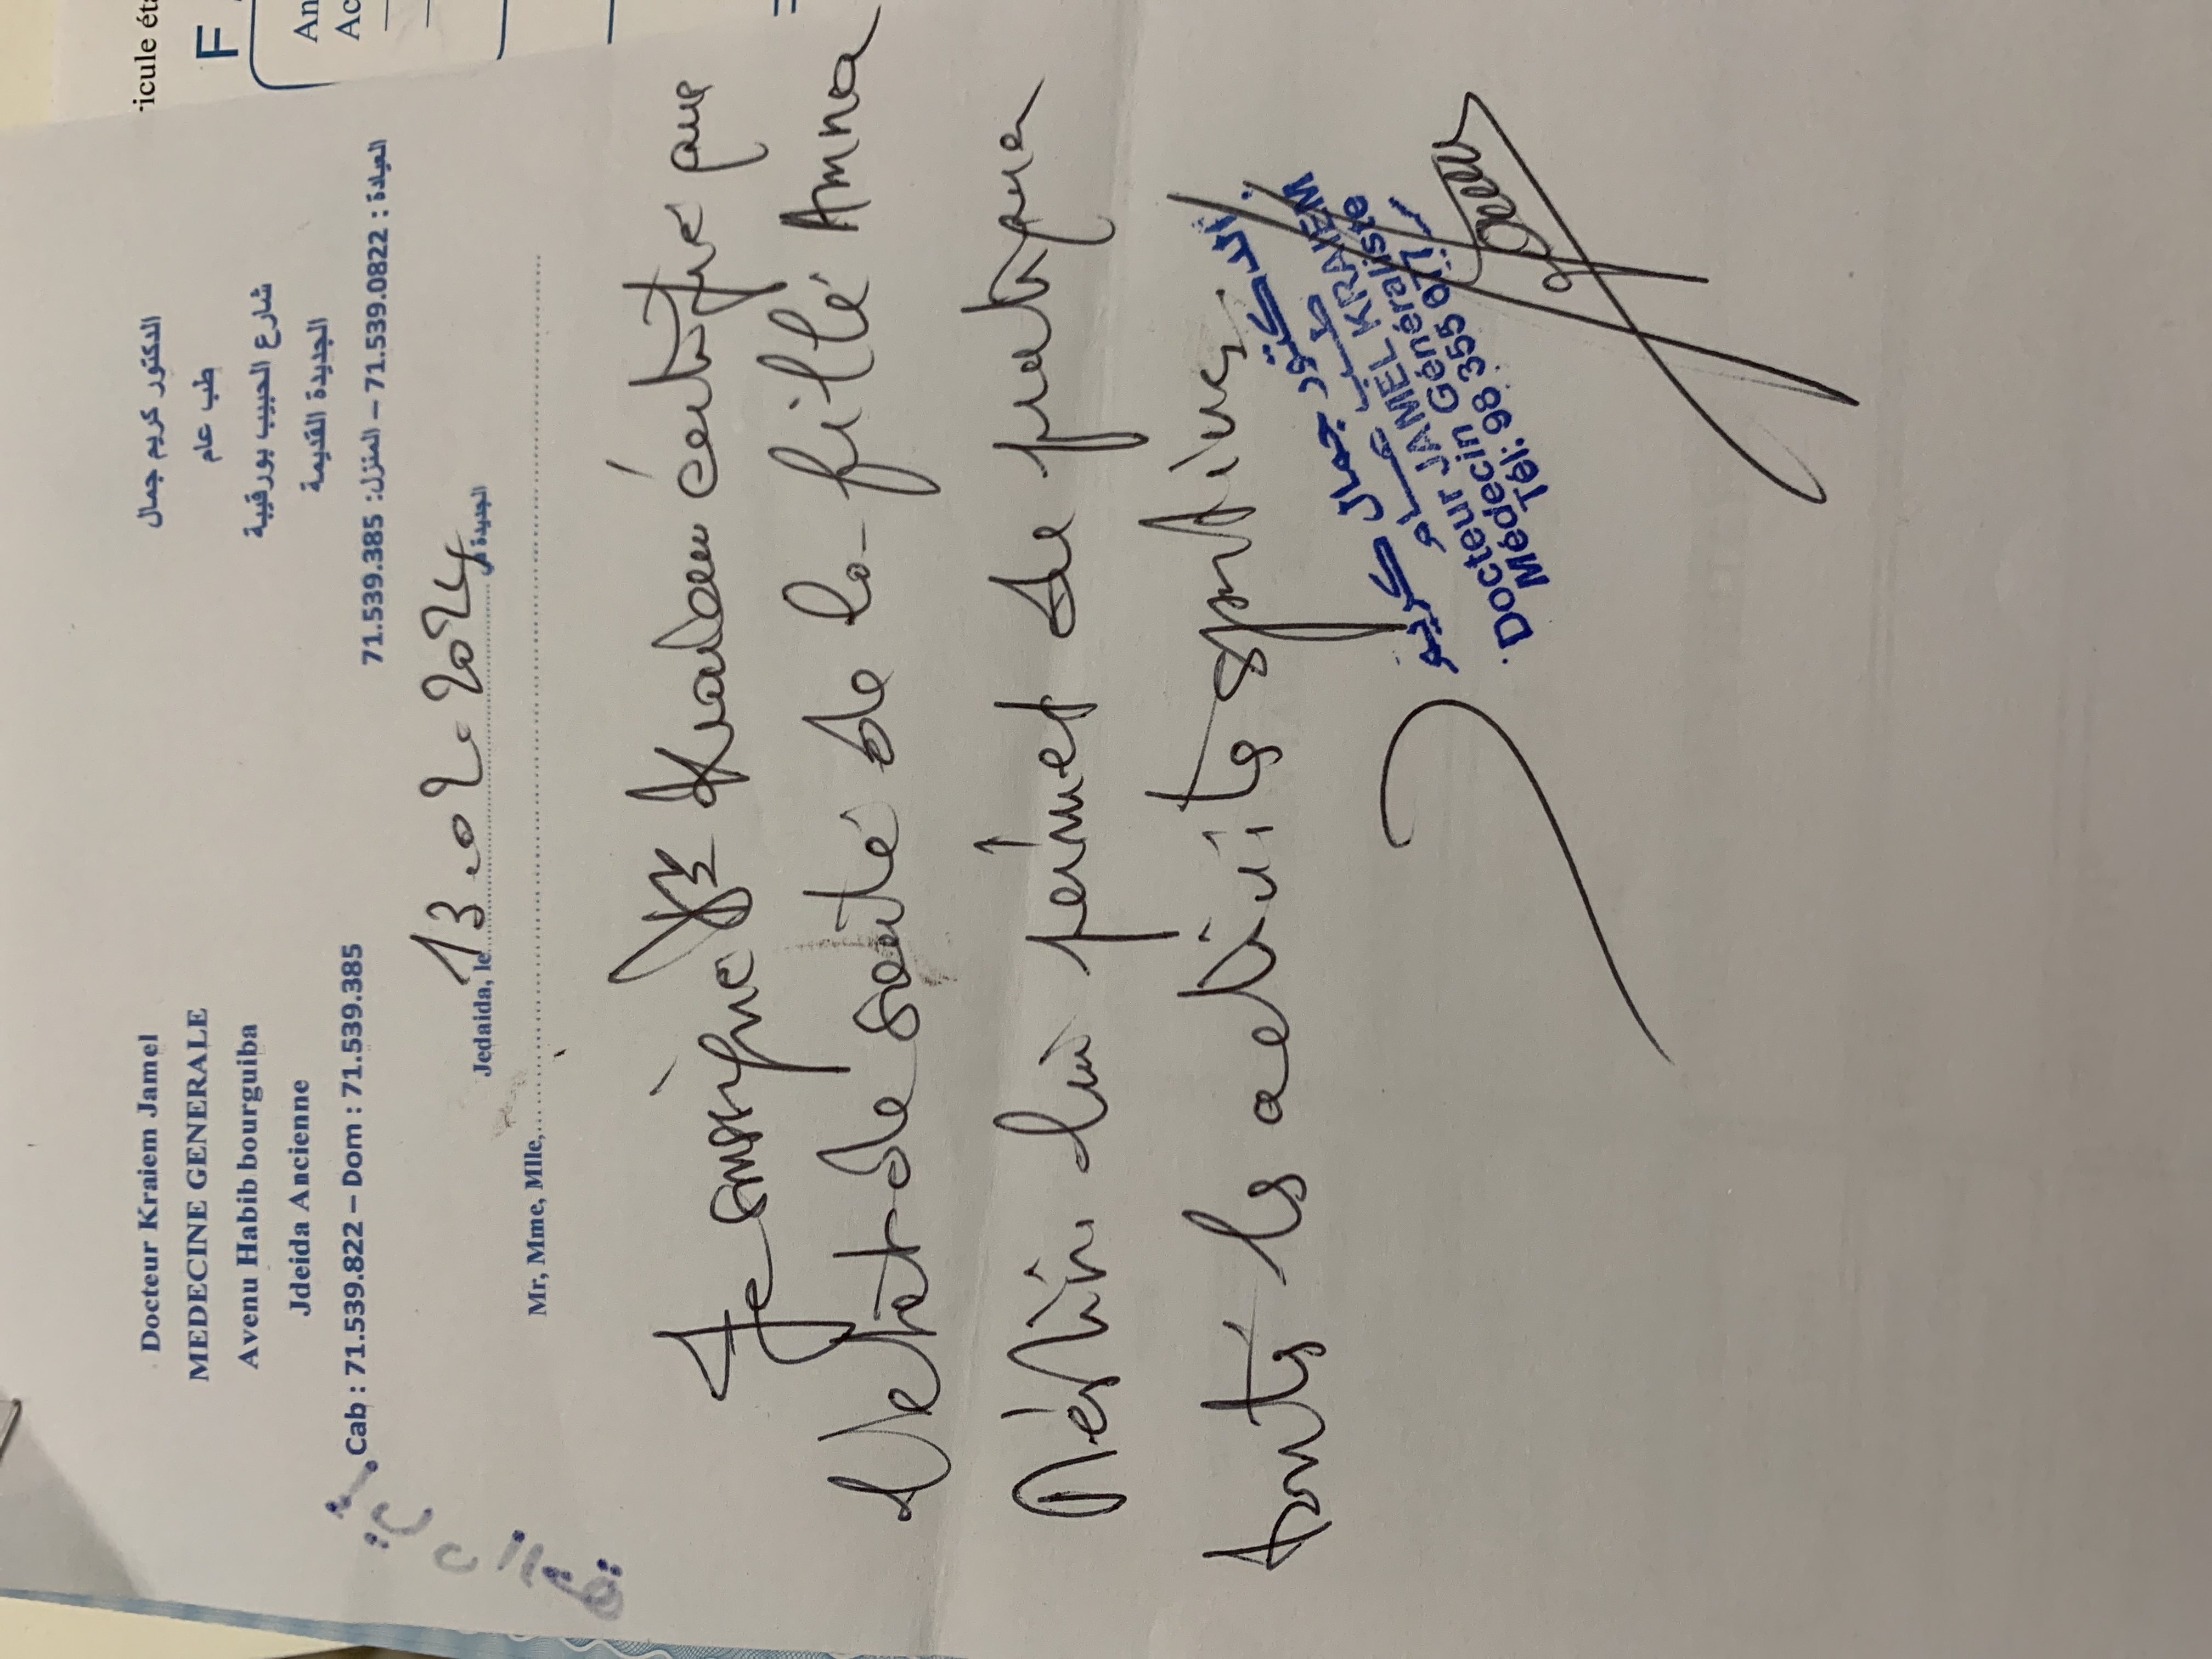 Docteur Kraiem Jamel
MEDECINE GENERALE
Avenu Habib bourguiba
Jdeida Ancienne
Cab : 71.539.822 – Dom : 71.539.385
الدكتور كريم جمال
طب عام
شارع الحبيب بورقيبة
الجديدة القديمة
العيادة : 71.539.0822 – المنزل: 71.539.385
Jedaida, le 13.02.2024 الجديدة في
Mr, Mme, Mlle,
Je soussigné Dr Kraiem certifie que
l'état de santé de la fille Amna
lui permet de pratiquer
toutes les activités sportives
الدكتور جمال كريم
طب عام
Docteur JAMEL KRAIEM
Médecin Généraliste
Tél: 98 355 671
ricule éta
F
An
Ac